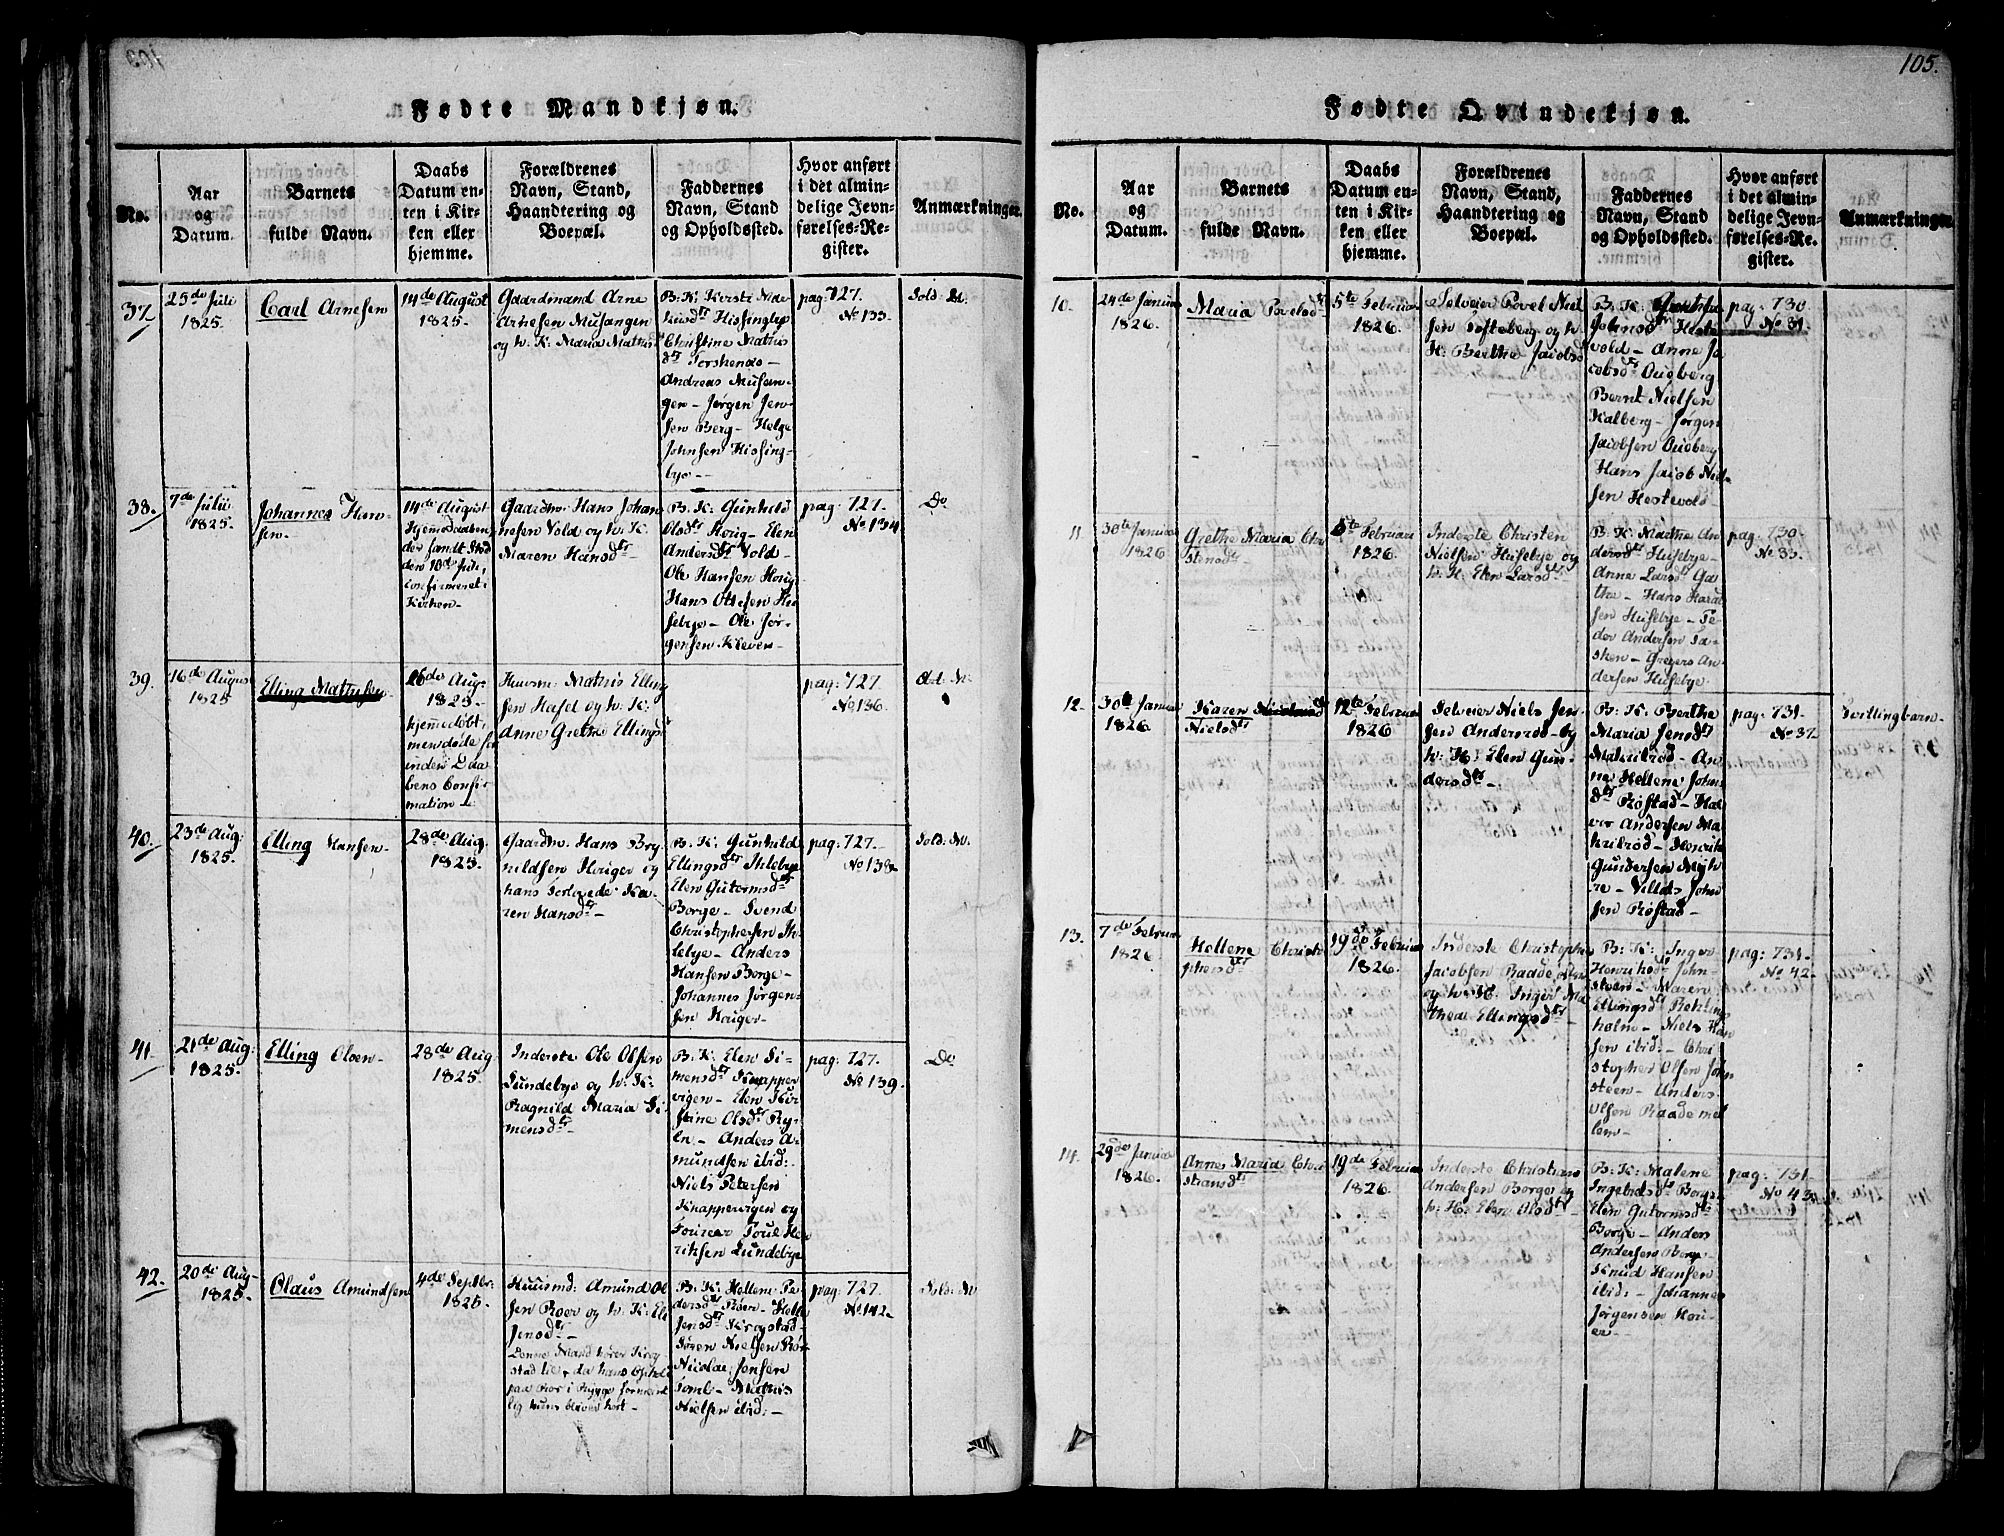 105.
Fødte Mandkjøn.
No.
Aar
og
Datum.
Barnets
fulde Navn.
Daabs
Datum en-
ten i Kir-
ken eller
hjemme.
Forældrenes
Navn, Stand,
Haandtering og
Boepæl.
Faddernes
Navn, Stand
og Opholdssted.
Hvor anført
i det almin-
delige Jevn-
førelses-Re-
gister.
Anmærkninger.
37.
25de Juli
1825.
Carl Arnesen
14de August
1825.
Gaardmand Arne
Arnesen Musangen
og h. K: Maria Mathis
B. K: Kersti
Hissingby
Christine Mathis
dtr Torshenas-
Andreas Musan-
gen- Jørgen Jen-
sen Berg- Helge
Johnsen Hissing-
bye-
pag: 727.
No 133.
Sold:
38.
7de Julii
1825.
Johannes Han-
sen-
14de August
den 10de Juli,
confirmeret i
Kirken-
Gaardbr. Hans Johan
nesen Vold og h. K:
Maren Hansdtr
B. K: Gunhild
Olsdtr Horig- Elen
Andersdtr Vold-
Ole Hansen Horig
Hans Ottesen Hu
sebye- Ole Jør-
gensen Kleven-
pag: 727.
No 134
Do
39.
16de August
1825
Elling Mathisen
16de Aug:
1825-
hjemmedøbt,
men døde for
inden Daa
bens Confir
mation-
Huusm: Mathis Elling
sen Hasel og h. K:
Anne Grethe Ellingsd
pag: 727.
No 136.
40.
23de Aug:
1825.
Elling Hansen
28de Aug:
1825.
Gaardbr. Hans Bry
nildsen Horiger og
hans Forlovede Ka-
ren Hansdtr-
B. K: Gunhild
Ellingsdtr Ihlebye
Elen Gutormsdtr
Borge- Svend
Christophersen Ih
lebye- Anders
Hansen Borge-
Johannes Jørgen-
sen Hauger-
pag: 727.
No 138-
Sold: No.
41.
21de Aug:
1825.
Elling Olsen
28de Aug
1825.
Inderste Ole Olsen
Lundebye og h. K:
Ragnild Maria Si
mensdtr-
B. K: Elen Si-
mensdtr Knapper
vigen- Elen Kir
stine Olsdtr Ryg
- Anders A-
mundsen ibid:
Niels Petersen
Knappervigen og
Foureer Poul Hen
riksen Lundebye
pag: 727.
No 139.
Do
42.
20de Aug-
1825.
Olaus Amundsen
4de Septbr:
1825.
Huusmd: Amund Ol
sen Roer og h. K: Eli
Jensdtr-
Denne Mand hører Krog
stad til, da hans Ophold
paa Roer i Rygge formod
lig kuns bliver kort-
B. K: Hellene Pe-
dersdtr Roer- Helle
Jensdtr Krogstad-
Søren Nielsen Roer
Nicolai Jonsen
Tomb- Mathis
Nielsen ibid:-
pag: 727.
No 142-
Sold: No
Fødte Qvindekjøn.
No.
Aar
og
Datum.
Barnets
fulde Navn.
Daabs
Datum en-
ten i Kir-
ken eller
hjemme.
Forældrenes
Navn, Stand,
Haandtering og
Boepæl.
Faddernes
Navn, Stand
og Opholdssted.
Hvor anført
i det almin-
delige Jevn-
førelses-Re-
gister.
Anmærkninger.
10.
24de Januar
1826.
Maria Povelsdtr
5te Februar
1826.
Selveier Povel Niel
sen Tofteberg og h.
K: Berthe Jacobsd
B. K: Grethe
Johnsdtr Heste
vold- Anne Ja
cobsdtr Oudberg
Bernt Nielsen
Kalberg- Jørgen
Jacobsen Oudberg
Hans Jacob Niel
sen Hestevold-
pag: 730
No 31.
11
30te Januar
1826
Grethe Maria Chri
stensdtr
5te Februar
1826.
Inderste Christen
Nielsen Husebye og
h. K: Elen Larsdtr
B. K: Marthe An
dersdtr Husebye-
Anne Larsdtr
- Hans Haral
sen Husebye- Pe
der Andersen
- Gregers An
dersen Husebye-
pag: 730-
No 33.
12-
30te Januar
1826
Karen
Nielsdtr
12te Februar
1826
Selveier Niels Jen-
sen Andersrød- og
h. K: Elen Gun-
dersdtr-
B. K: Berthe
Maria Jensdtr
Makrilrød- An
ne Hellene Johns
dtr Røstad- Hal
vor Andersen Ma
krilrød- Henrik
Gundersen Myh
re- Villads John
sen Røstad-
pag: 731-
No 37-
Tvillingbarn-
13.
7de Februar
1826
Hellene Christo
phersdtr
19de Februar
1826.
Inderste Christopher
Jacobsen Raade
og h. K: Inger Ma
thea Ellingsdtr
B: K: Inger
Henriksdtr John-
steen- Maren
Ellingsdtr
holm- Niels Han
sen ibid:- Chri
stopher Olsen John
steen- Anders
Olsen Raade mel
lem-
pag: 731-
No 42-
14.
29de Januar
1826.
Anne Maria Chri
stiansdtr
19de Februar
1826
Inderste Christian
Andersen Borge og
h. K: Elen Olsdtr
B: K: Malene
Ingebretsdtr Borge
Elen Gutormsdtr
Borge- Anders
Andersen Borge-
Knud Hansen
ibid:- Johannes
Jørgensen Hou-
er-
pag: 731-
No 43